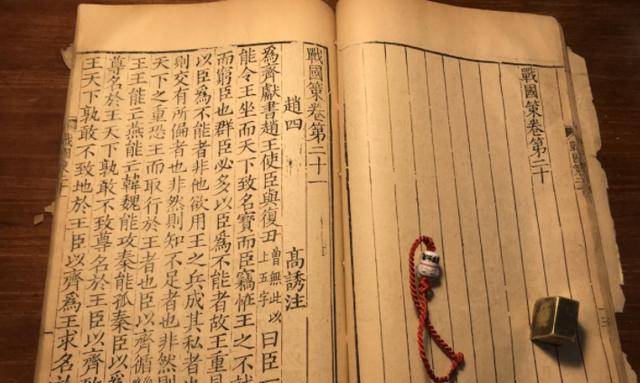 戰國策卷第二十
戰國策卷第二十一
趙四 高誘注
為齊獻書趙王使臣與復丑曾無此以上五字曰臣一
能令王坐而天下致名寶而臣竊怪王之不
而窮臣也群臣必多以臣為不能者故王重見
以臣為不能者非他欲用王之兵成其私者
則交有所偏者也非然則知不足者也非然則
天下之重恐王而取行於王者也臣以齊循
王王能亡燕能亡韓魏能攻秦能孤秦臣以
尊名於王天下孰敢不致尊名於王臣以齊致
王天下孰敢不致地於王臣以齊為王求名於